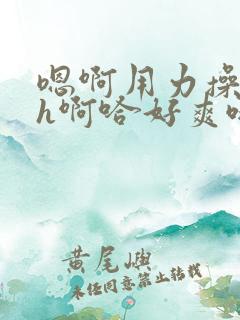 嗯啊用力操
h啊哈好爽
黄尾嶼
未经同意禁止转载